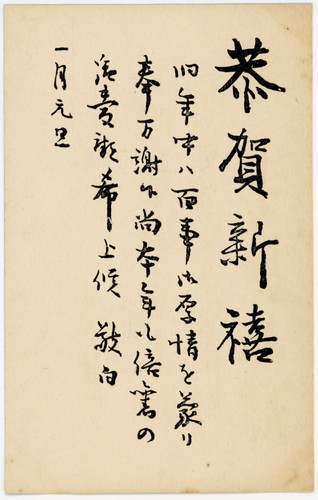 恭賀新禧
旧年中ハ百事御厚情を蒙り
奉万謝候尚本年も倍舊の
御愛顧希上候 敬白
一月元旦